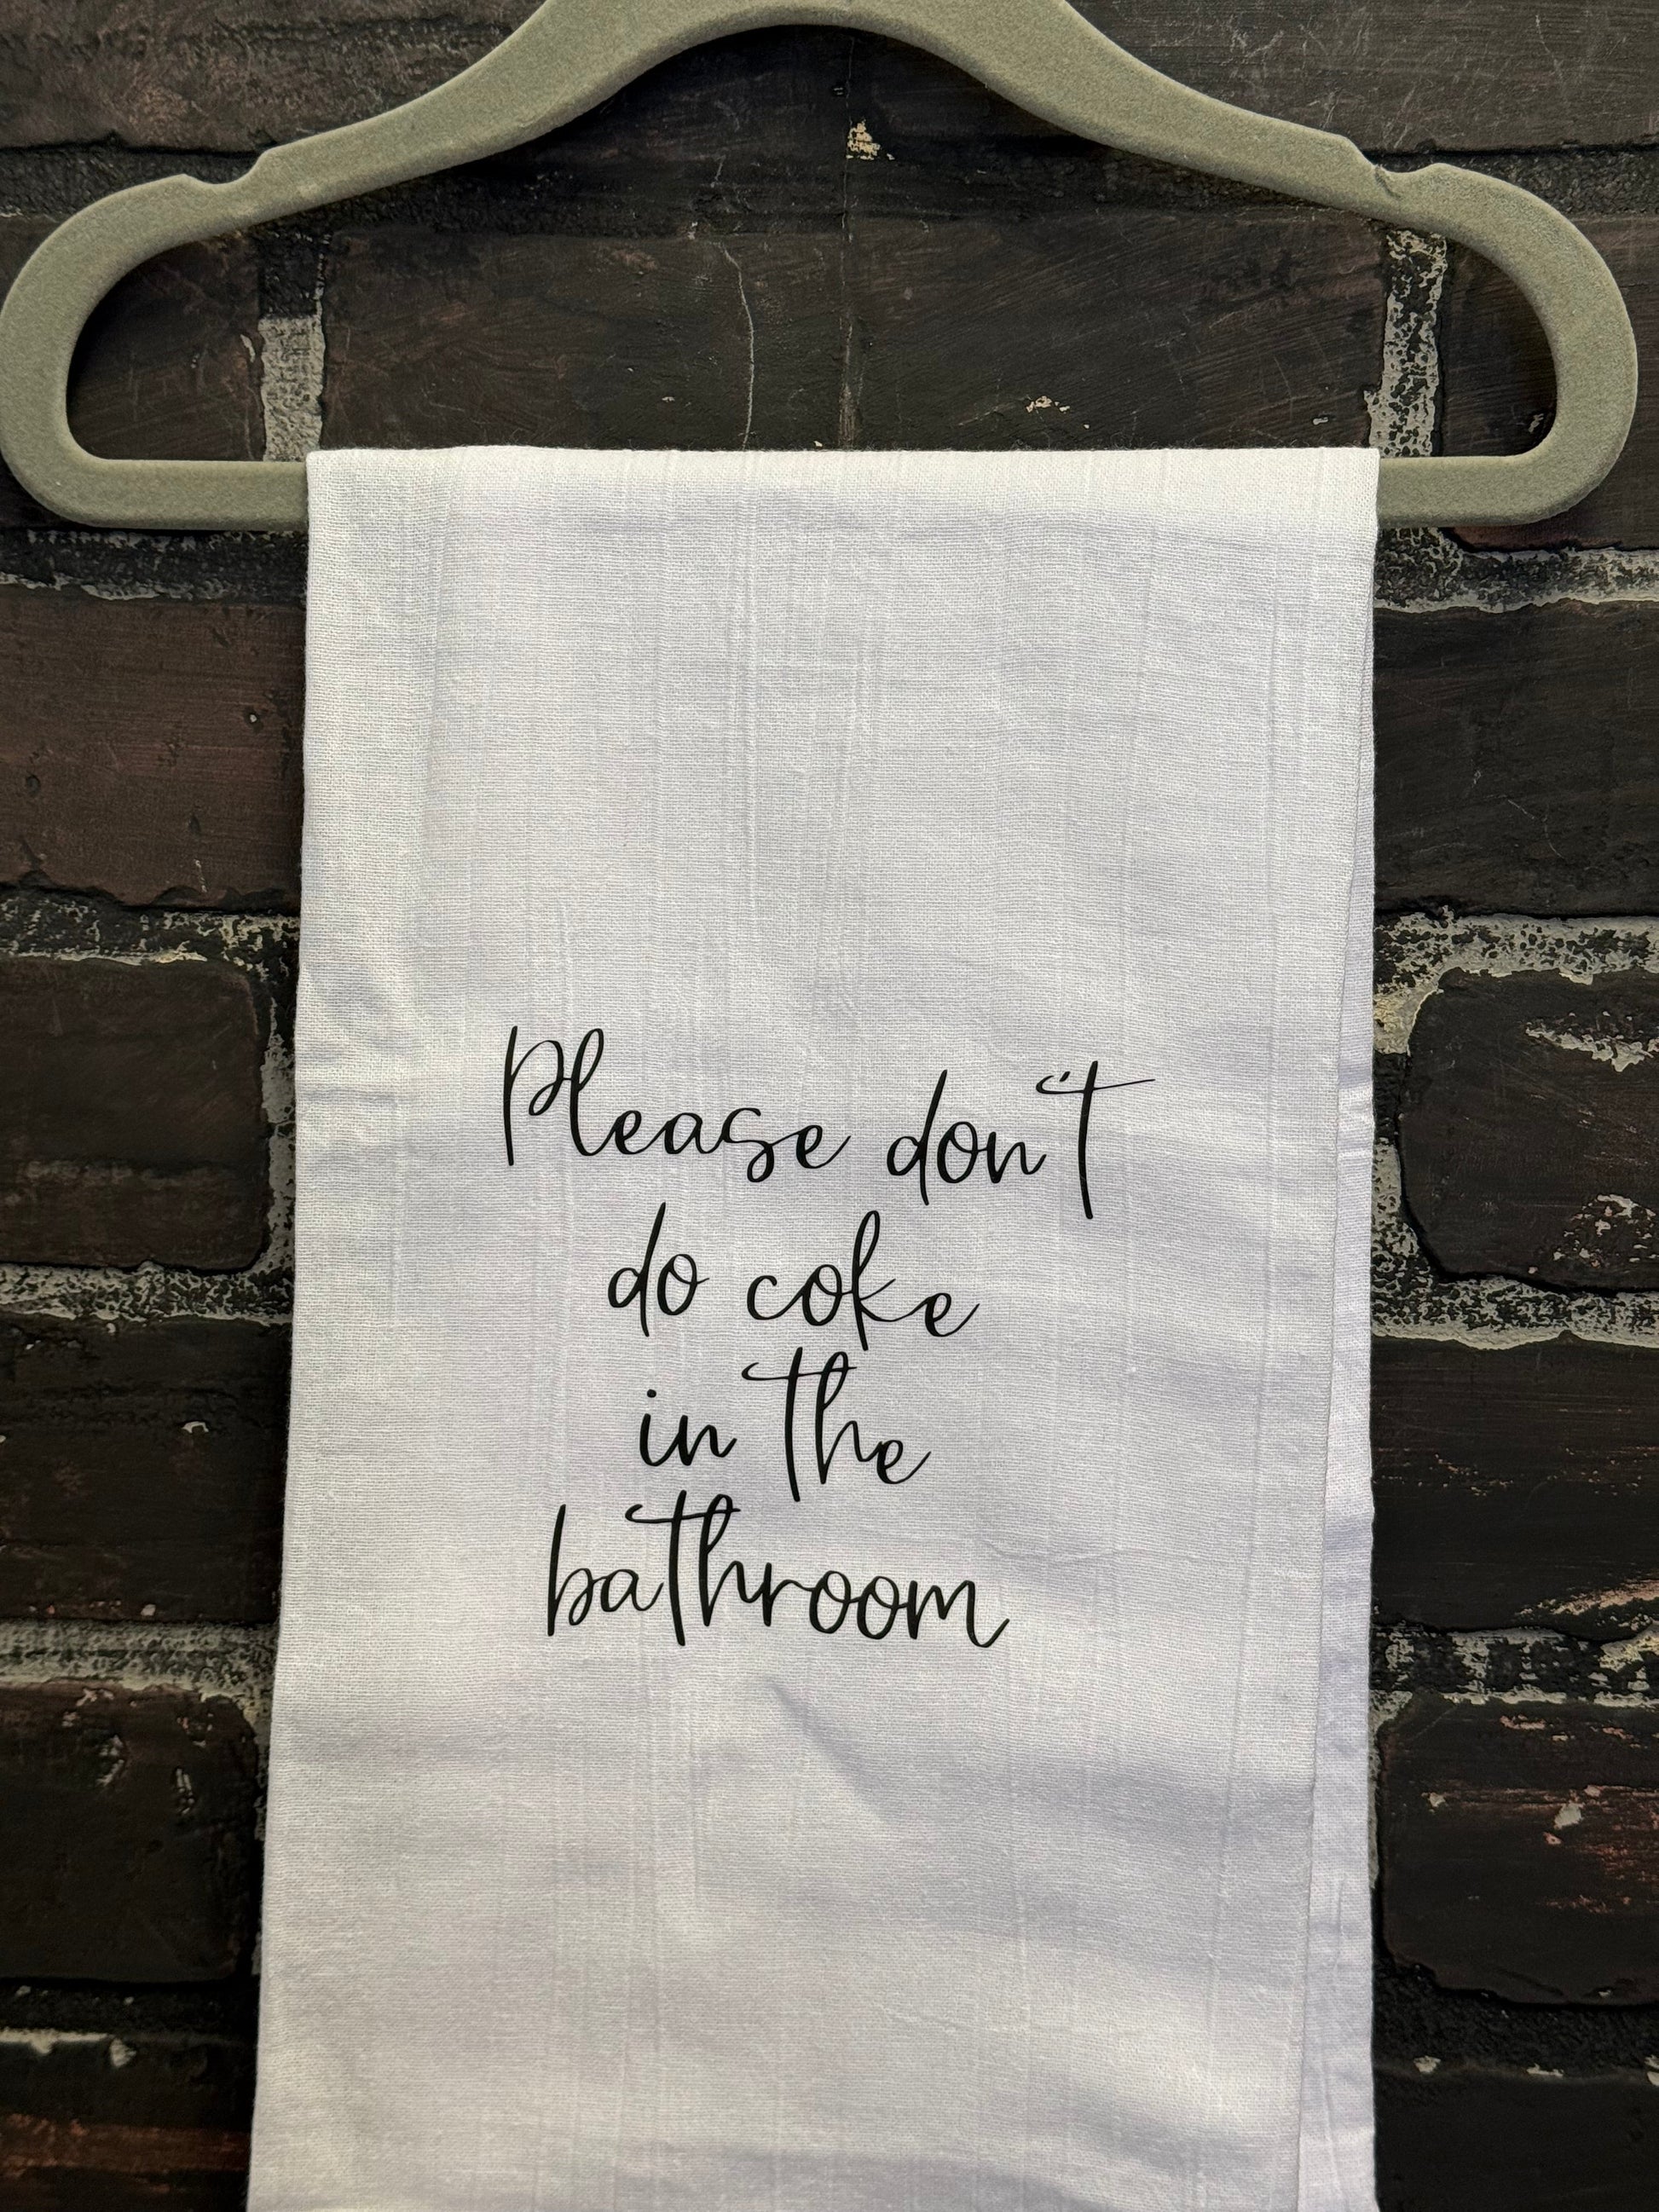 Please don't
do coke
in the
bathroom